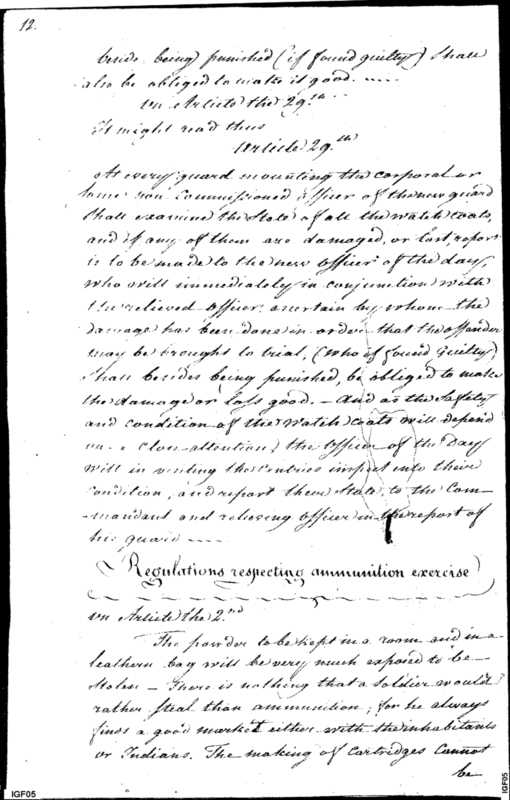 12.
beside being punished (if found guilty) shall
also be obliged to make it good. ----
on Article the 29.th
It might read thus
Article 29.th
At every guard mounting the corporal or
some non Commissioned officer of the new guard
shall examine the State of all the watch coats,
and if any of them are damaged, or lost report
is to be made to the new officer of the day,
who will immediately in conjunction with
the relieved officer ascertain by whom the
damage has been done in order that the offender
may be brought to trial, (who if found guilty)
shall besides being punished, be obliged to make
the damage or loss good. - And as the Safety
and condition of the Watch coats will depend
on a close attention, the officer of the Day
will in visiting the Centries inspect into their
condition, and report their State, to the Com-
-mandant and relieving officer in the report of
his guard ----
Regulations respecting ammunition exercise
on Article the 2.nd
The powder to be kept in a room and in a
leathern bag will be very much exposed to be
Stolen - There is nothing that a Soldier would
rather steal than ammunition; for he always
finds a good market either with the inhabitants
or Indians. The making of Cartridges cannot
be
IGF05
IGF05